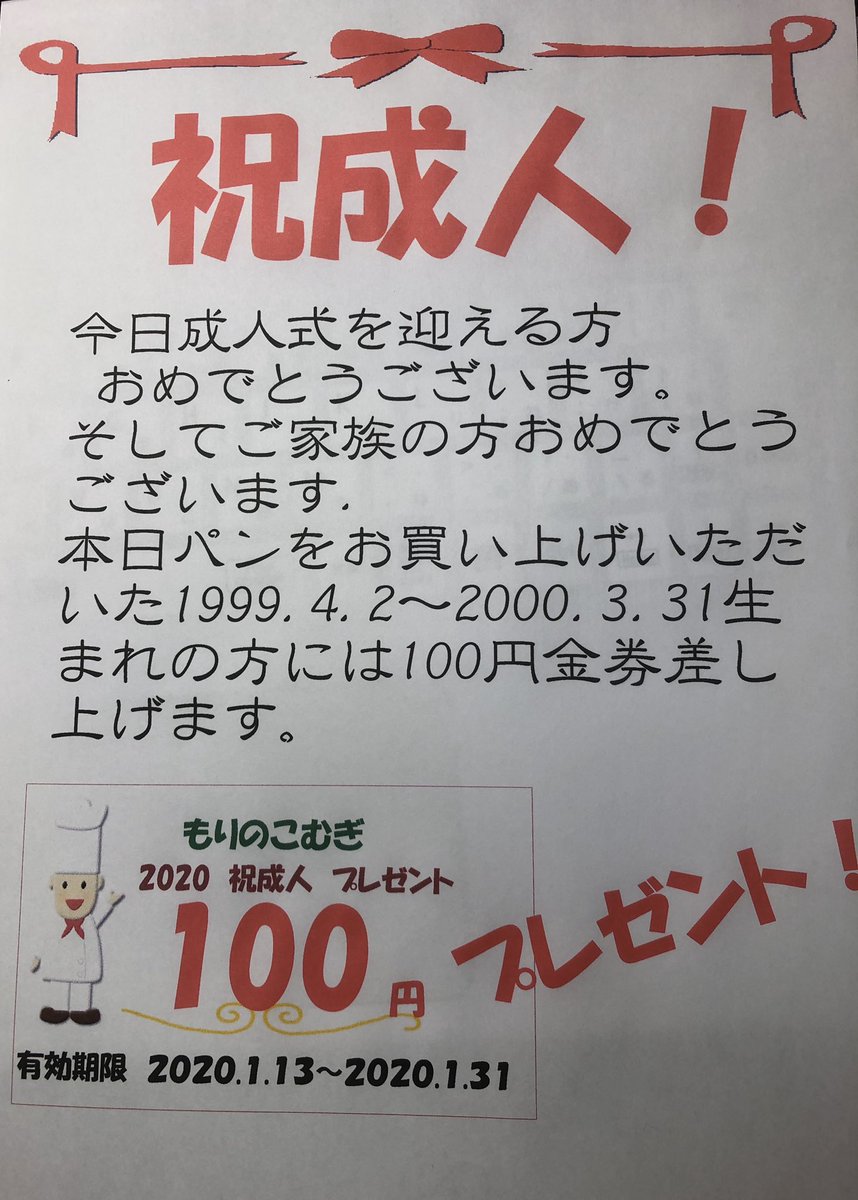 祝成人！
今日成人式を迎える方
おめでとうございます。
そしてご家族の方おめでとう
ございます.
本日パンをお買い上げいただ
いた1999.4.2～2000.3.31生
まれの方には100円金券差し
上げます。
もりのこむぎ
2020 祝成人 プレゼント
100円
プレゼント！
有効期限 2020.1.13～2020.1.31